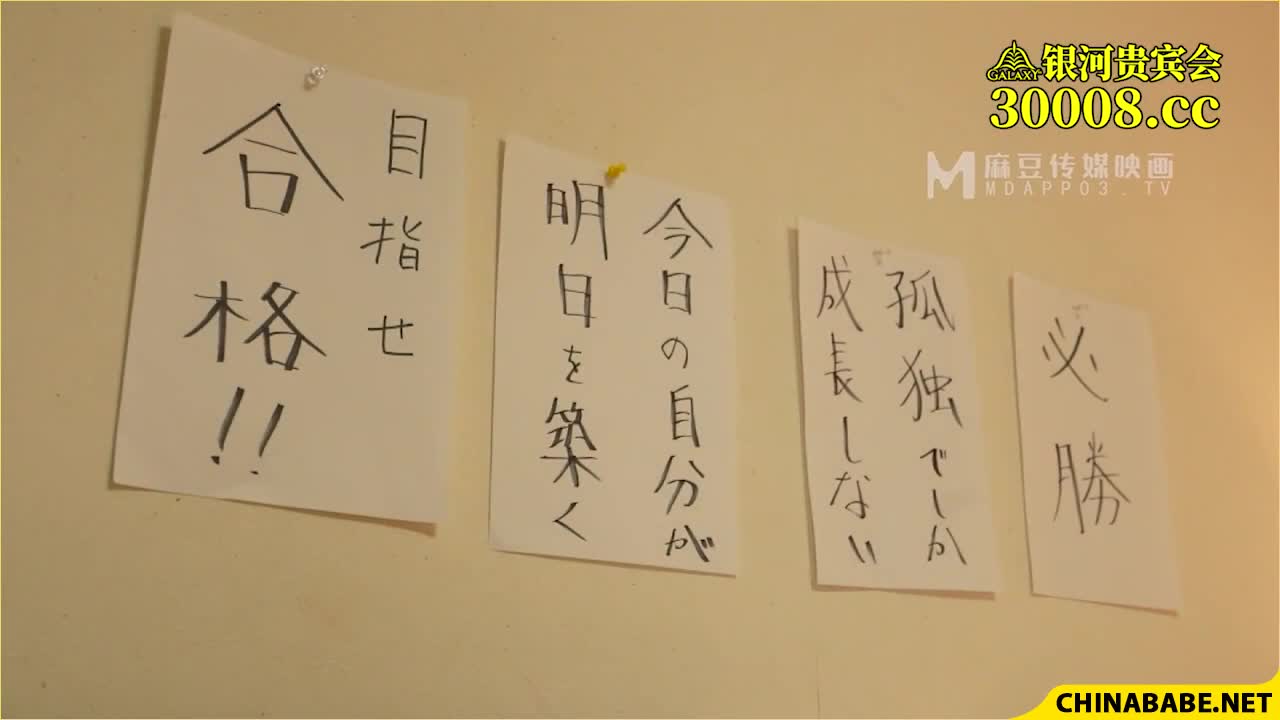 目指せ
合格!!
今日の自分が
明日を築く
孤独でしか
成長しない
必勝
GALAXY 银河贵宾会
30008.cc
M 麻豆传媒映画
MDAPP03.TV
CHINABABE.NET